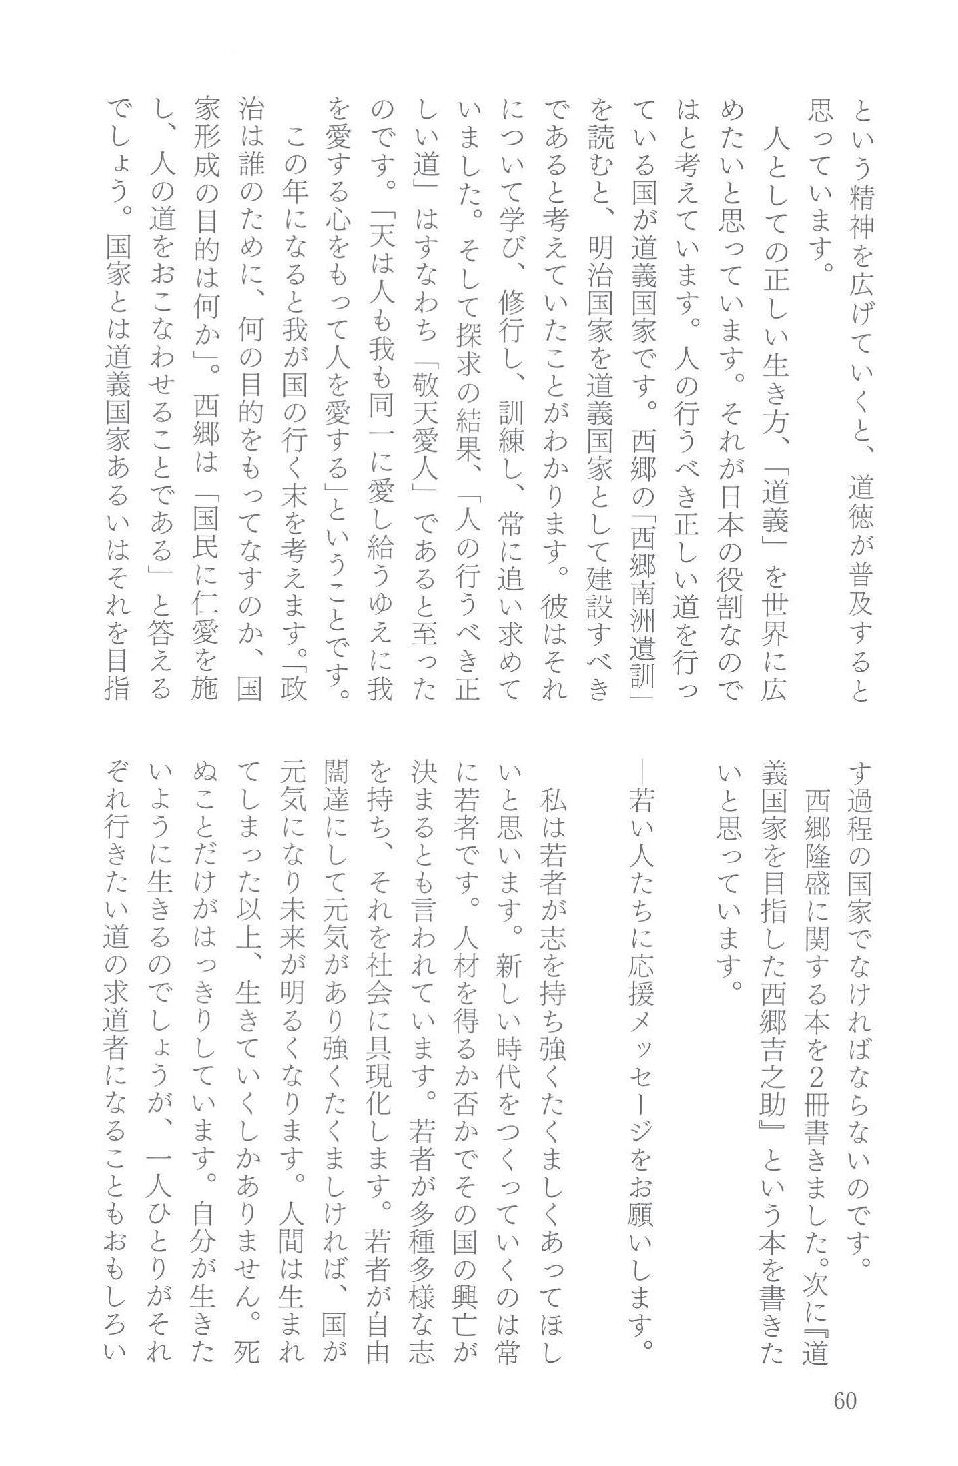 という精神を広げていくと、道徳が普及すると
思っています。
人としての正しい生き方、「道義」を世界に広
めたいと思っています。それが日本の役割なので
はと考えています。人の行うべき正しい道を行っ
ている国が道義国家です。西郷の「西郷南洲遺訓」
を読むと、明治国家を道義国家として建設すべき
であると考えていたことがわかります。彼はそれ
について学び、修行し、訓練し、常に追い求めて
いました。そして探求の結果、「人の行うべき正
しい道」はすなわち「敬天愛人」であると至った
のです。「天は人も我も同一に愛し給うゆえに我
を愛する心をもって人を愛する」ということです。
この年になると我が国の行く末を考えます。「政
治は誰のために、何の目的をもってなすのか、国
家形成の目的は何か」。西郷は「国民に仁愛を施
し、人の道をおこなわせることである」と答える
でしょう。国家とは道義国家あるいはそれを目指
す過程の国家でなければならないのです。
西郷隆盛に関する本を2冊書きました。次に『道
義国家を目指した西郷吉之助』という本を書きた
いと思っています。
―若い人たちに応援メッセージをお願いします。
私は若者が志を持ち強くたくましくあってほし
いと思います。新しい時代をつくっていくのは常
に若者です。人材を得るか否かでその国の興亡が
決まるとも言われています。若者が多種多様な志
を持ち、それを社会に具現化します。若者が自由
闊達にして元気があり強くたくましければ、国が
元気になり未来が明るくなります。人間は生まれ
てしまった以上、生きていくしかありません。死
ぬことだけがはっきりしています。自分が生きた
いように生きるのでしょうが、一人ひとりがそれ
ぞれ行きたい道の求道者になることもおもしろい
60